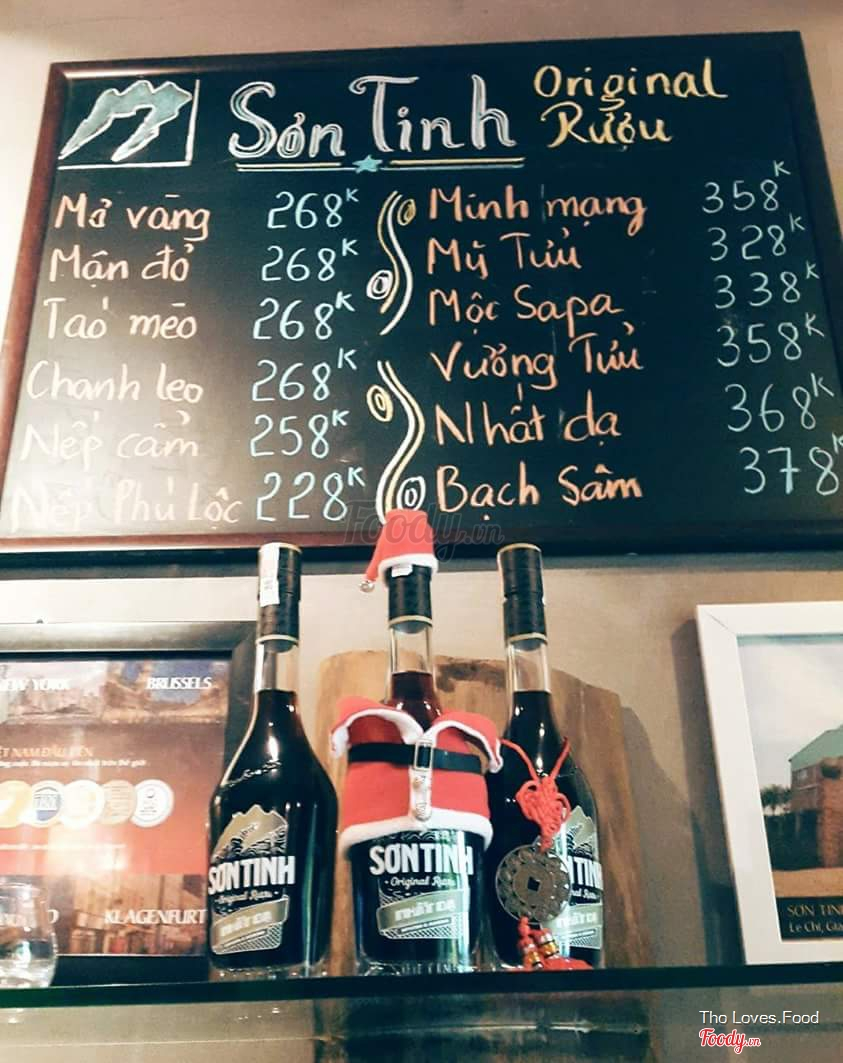 Sơn Tinh
Original
Rượu
Mơ vàng 268K
Mận đỏ 268K
Táo mèo 268K
Chanh leo 268K
Nếp cẩm 258K
Nếp Phú Lộc 228K
Minh mạng 358K
Mỹ Tửu 328K
Mộc Sapa 338K
Vường Tửu 358K
Nhất dạ 368K
Bạch Sâm 378K
Foody.vn
NEW YORK
BRUSSELS
KLAGENFURT
SƠN TINH
Original Rượu
NHẤT DẠ
SƠN TINH
Original Rượu
NHẤT DẠ
TINH
SƠN TINH
Le Chi, Gia
Tho Loves.Food
Foody.vn